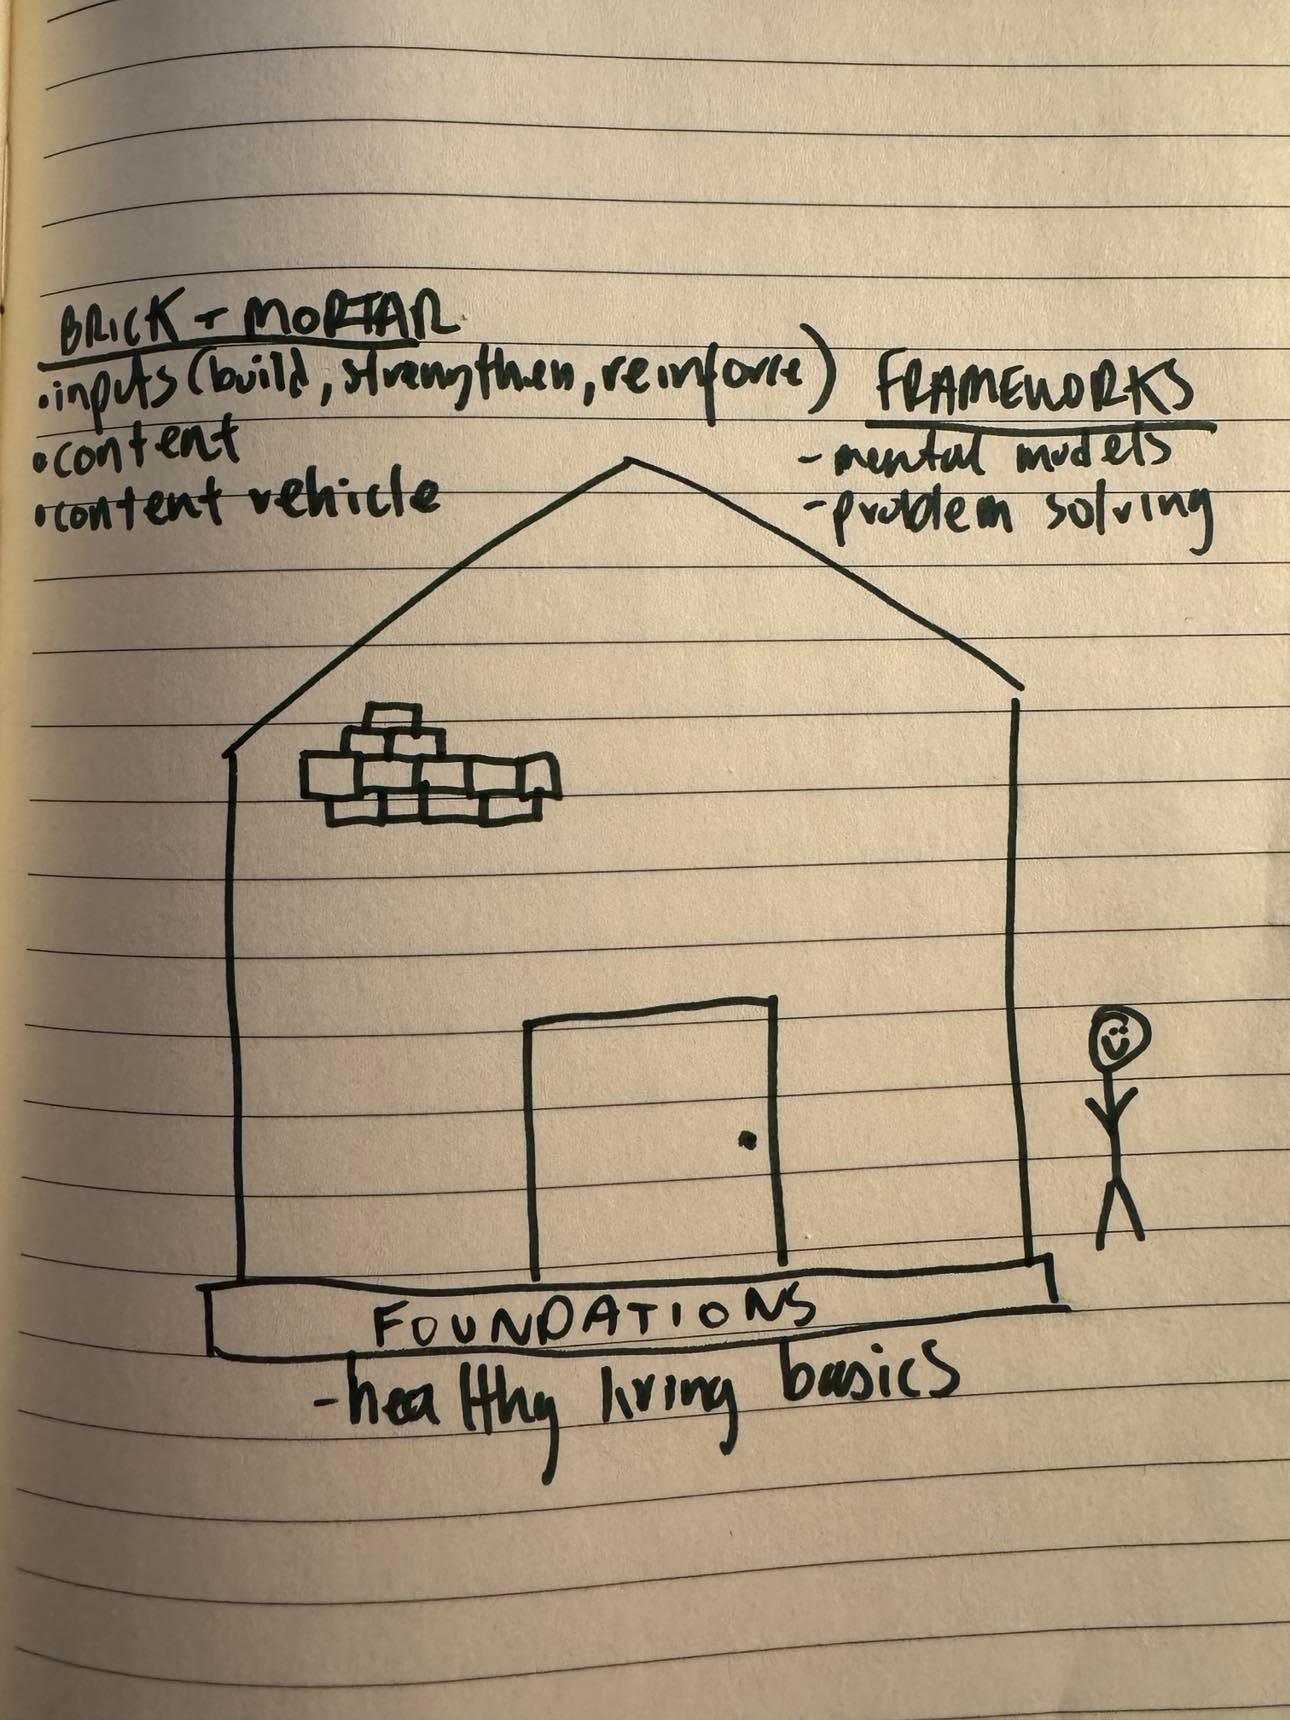 BRICK + MORTAR
• inputs (build, strengthen, reinforce)
• content
• content vehicle
FRAMEWORKS
- mental models
- problem solving
FOUNDATIONS
- healthy living basics